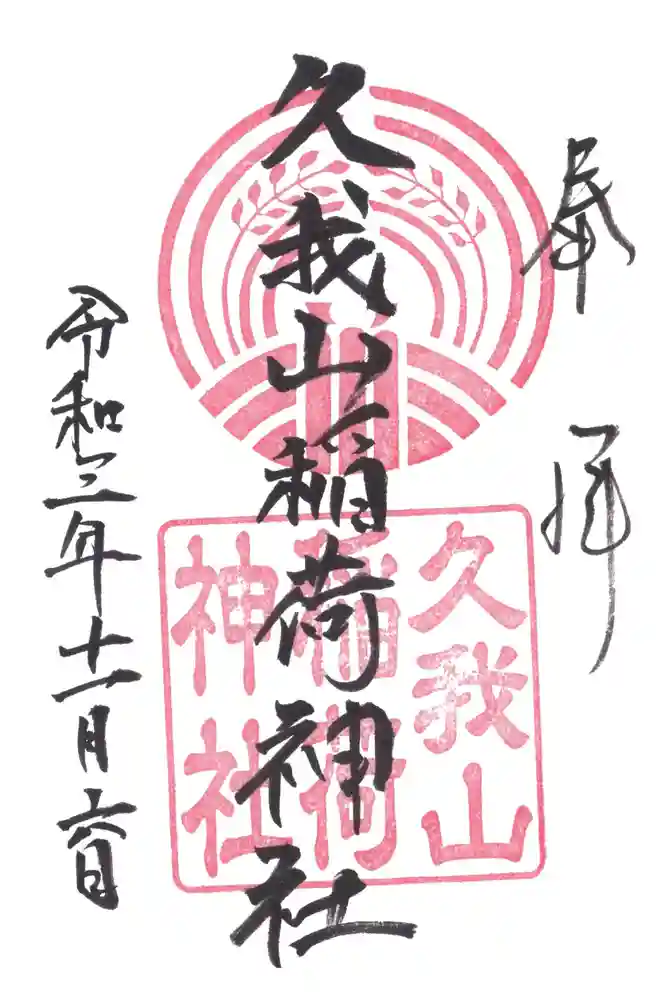 奉拝
久我山稲荷神社
令和三年十一月六日
久我山
稲荷
神社